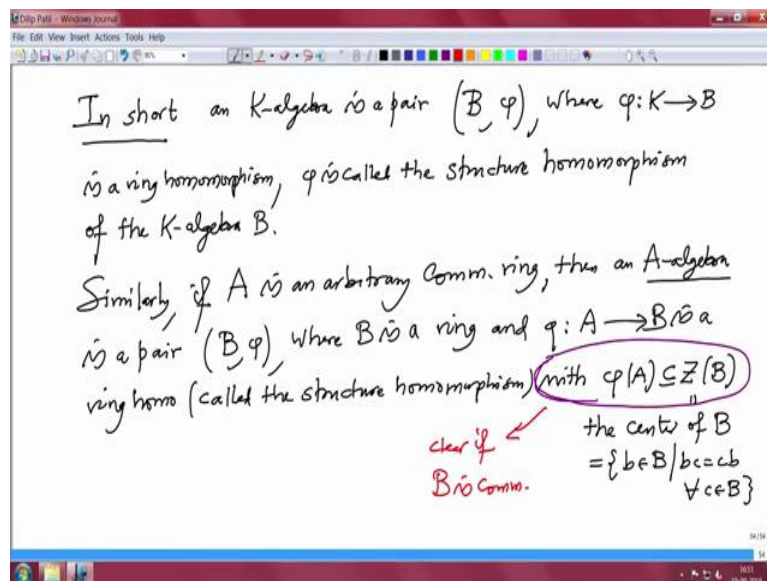 Dilip Patil - Windows Journal
File Edit View Insert Actions Tools Help
In short an K-algebra is a pair (B, φ), where φ: K → B
is a ring homomorphism, φ is called the structure homomorphism
of the K-algebra B.
Similarly, if A is an arbitrary Comm. ring, then an A-algebra
is a pair (B, φ), where B is a ring and φ: A → B is a
ring homo (called the structure homomorphism) with φ(A) ⊆ Z(B)
||
the center of B
= {b ∈ B / bc = cb
∀ c ∈ B}
clear if
B is comm.
54/54
54
1651